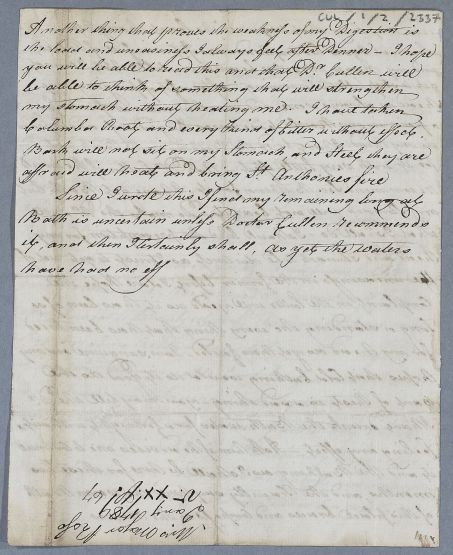 CUL/1/2/2337
Another thing that proves the weakness of my Digestion is
the load and uneasiness I always feel after Dinner – I hope
you will be able to read this and that Dr. Cullen will
be able to think of something that will strengthen
my stomach without heating me – I have taken
Columbo Root and every kind of bitter without effect.
Bark will not sit on my Stomach and Steel they are
affraid will heat and bring St. Anthonies fire
Since I wrote this I find my remaining long at
Bath is uncertain unless Doctor Cullen recommends
it, and then I certainly shall, as yet the waters
have had no eff
Miss
1789